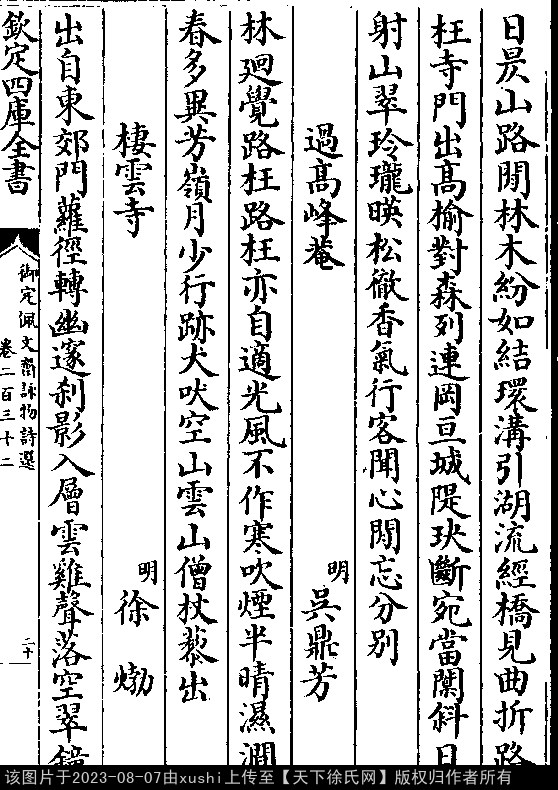 日昃山路閒林木紛如結環溝引湖流經橋見曲折路
枉寺門出高榆對森列連岡亘城隄玦斷宛當闑斜日
射山翠玲瓏暎松徹香氣行客聞心閒忘分別
過高峰菴
明 吳鼎芳
林廻覺路枉路枉亦自適光風不作寒吹煙半晴濕澗
春多異芳嶺月少行跡犬吠空山雲山僧杖藜出
棲雲寺
明 徐㶿
出自東郊門蘿徑轉幽邃刹影入層雲雞聲落空翠鐘
欽定四庫全書
御定佩文齋詠物詩選
卷二百三十二
二十
该图片于2023-08-07由xushi上传至【天下徐氏网】版权归作者所有